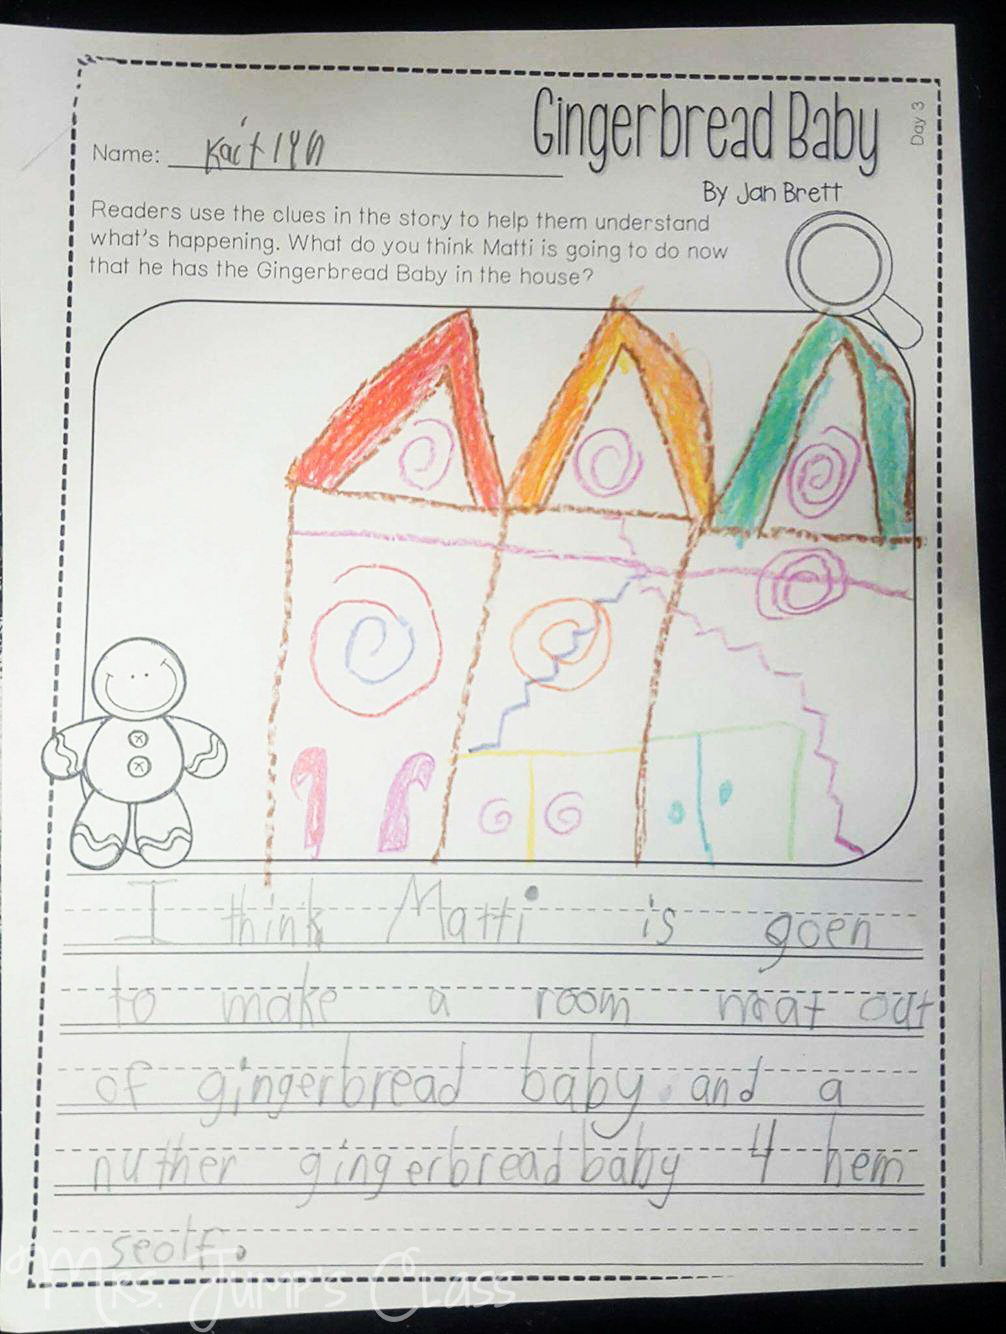 Gingerbread Baby
Day 3
Name: Kaitlyn
By Jan Brett
Readers use the clues in the story to help them understand
what's happening. What do you think Matti is going to do now
that he has the Gingerbread Baby in the house?
I think Matti is goen
to make a room out
of gingerbread baby and a
nuther gingerbread baby 4 hem
seolf.
Mrs. Jump's Class